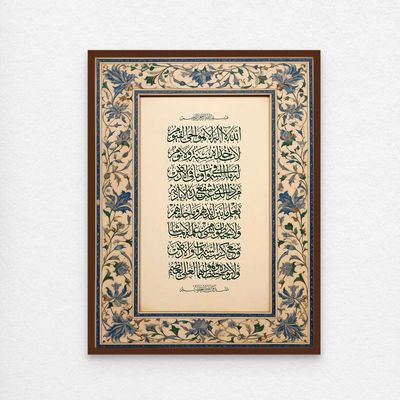 بسم الله الرحمن الرحيم
الله لا إله إلا هو الحي القيوم
لا تأخذه سنة ولا نوم
له ما في السموات وما في الأرض
من ذا الذي يشفع عنده إلا بإذنه
يعلم ما بين أيديهم وما خلفهم
ولا يحيطون بشيء من علمه إلا بما شاء
وسع كرسيه السموات والأرض
ولا يؤده حفظهما وهو العلي العظيم